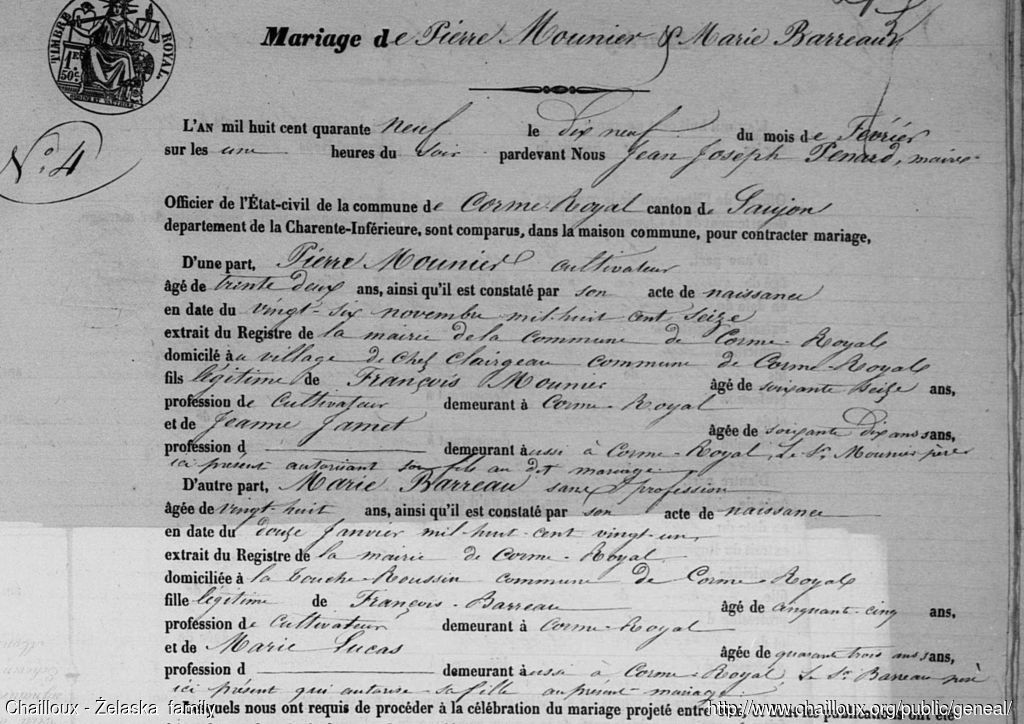 Mariage de Pierre Mounier & Marie Barreau
TIMBRE ROYAL.
1F. 50c.
N.o 4
L'AN mil huit cent quarante neuf le dix neuf du mois de Février
sur les une heures du soir pardevant Nous Jean Joseph Penard, maire
Officier de l'État-civil de la commune de Corme-Royal canton de Saujon
departement de la Charente-Inférieure, sont comparus, dans la maison commune, pour contracter mariage,
D'une part, Pierre Mounier cultivateur
âgé de trente deux ans, ainsi qu'il est constaté par son acte de naissance
en date du vingt-six novembre mil-huit cent seize
extrait du Registre de la mairie de la commune de Corme-Royal
domicilé au village de chez Clairgeau commune de Corme-Royal
fils légitime de François Mounier âgé de soixante seize ans,
profession de cultivateur demeurant à Corme-Royal
et de Jeanne Jamet âgée de soixante dix ans ans,
profession d demeurant aussi à Corme-Royal, Le Sr. Mounier père
ici présent autorisant son fils au dit mariage.
D'autre part, Marie Barreau sans profession
âgée de vingt-huit ans, ainsi qu'il est constaté par son acte de naissance
en date du douze Janvier mil-huit-cent vingt-un
extrait du Registre de la mairie de Corme-Royal
domiciliée à la Touche-Roussin commune de Corme-Royal
fille légitime de François-Barreau âgé de cinquante-cinq ans,
profession de cultivateur demeurant à Corme-Royal
et de Marie Lucas âgée de quarante trois ans ans,
profession d demeurant aussi à Corme-Royal Le Sr. Barreau père
ici présent qui autorise sa fille au présent mariage.
Lesquels nous ont requis de procéder à la célébration du mariage projeté entre
Chailloux - Żelaska family
http://www.chailloux.org/public/geneal/